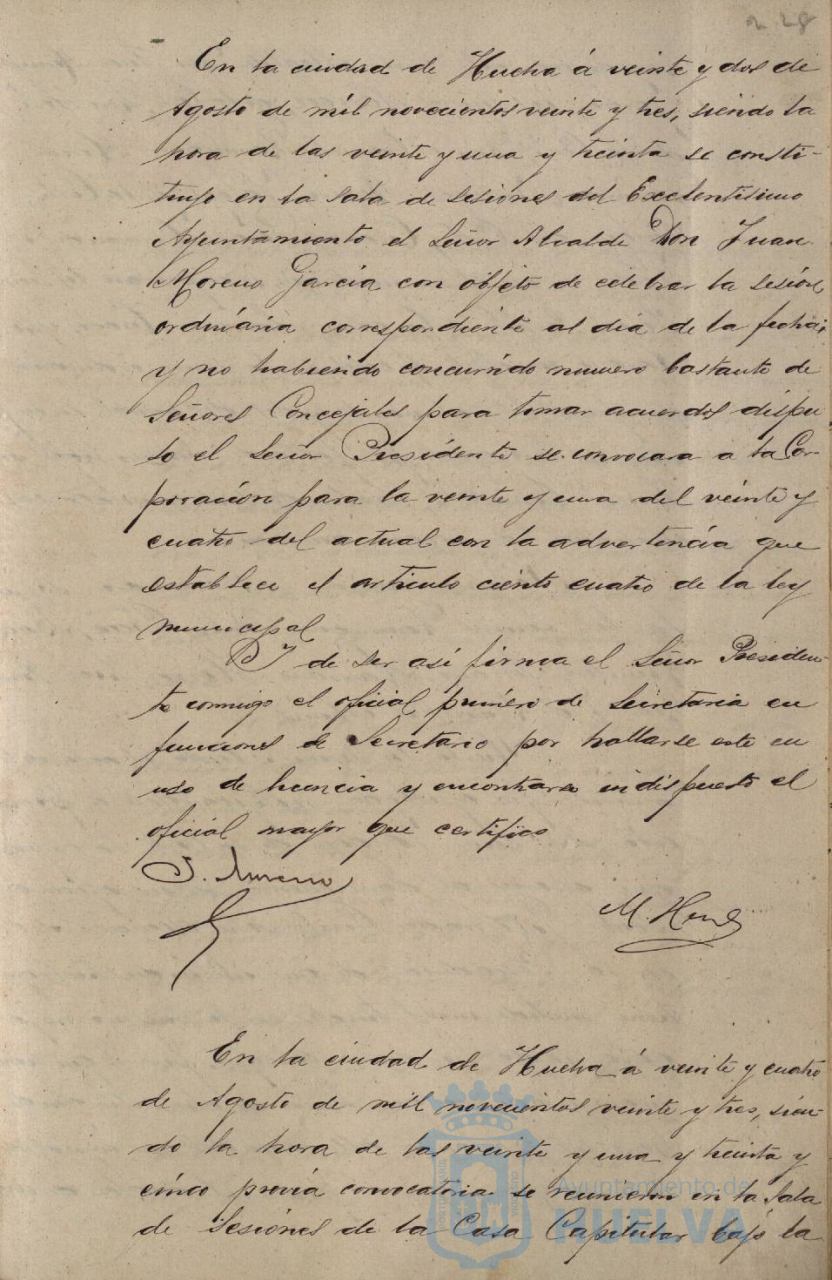 228
En la ciudad de Huelva á veinte y dos de
Agosto de mil novecientos veinte y tres, siendo la
hora de las veinte y una y treinta se consti-
tuyó en la sala de sesiones del Excelentisimo
Ayuntamiento el Señor Alcalde Don Juan
Moreno García con objeto de celebrar la sesión
ordinaria correspondiente al dia de la fecha;
y no habiendo concurrido numero bastante de
Señores Concejales para tomar acuerdos dispu-
so el Señor Presidente se convocara a la Cor-
poración para la veinte y una del veinte y
cuatro del actual con la advertencia que
establece el articulo ciento cuatro de la ley
municipal
Y de ser así firma el Señor Presiden-
te conmigo el oficial primero de Secretaria en
funciones de Secretario por hallarse este en
uso de licencia y encontrarse indispuesto el
oficial mayor que certifico
J. Moreno
M.
En la ciudad de Huelva á veinte y cuatro
de Agosto de mil novecientos veinte y tres, sien-
do la hora de las veinte y una y treinta y
cinco previa convocatoria se reunieron en la Sala
de Sesiones de la Casa Capitular bajo la
Ayuntamiento de
HUELVA